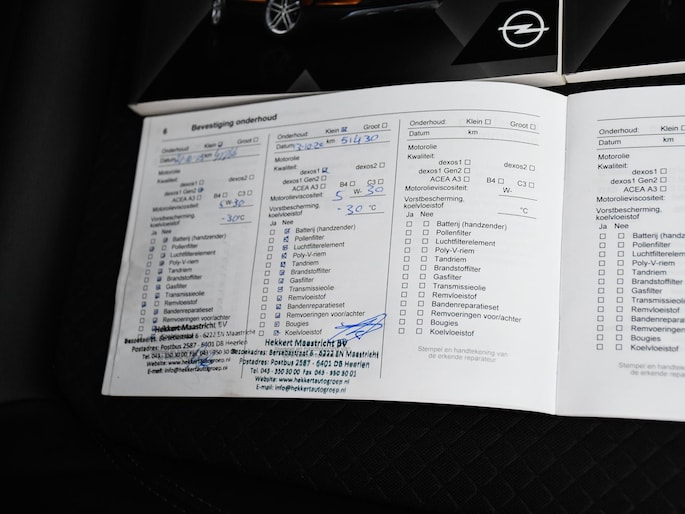 6 Bevestiging onderhoud
Onderhoud: Klein Groot
Datum km
Motorolie
Kwaliteit:
dexos1 dexos2
dexos1 Gen2
ACEA A3 B4 C3
Motorolieviscositeit: 5 W- 30
Vorstbescherming,
koelvloeistof - 30 °C
Ja Nee
Batterij (handzender)
Pollenfilter
Luchtfilterelement
Poly-V-riem
Tandriem
Brandstoffilter
Gasfilter
Transmissieolie
Remvloeistof
Bandenreparatieset
Remvoeringen voor/achter
Hekkert Maastricht BV
Bezoekadres: Bersebastraat 6 - 6222 EN Maastricht
Postadres: Postbus 2587 - 6401 DB Heerlen
Tel. 043 - 350 30 00 Fax 043 - 350 30 01
Website: www.hekkertautogroep.nl
E-mail: info@hekkertautogroep.nl
Onderhoud: Klein Groot
Datum 3-10-25 km 51430
Motorolie
Kwaliteit:
dexos1 dexos2
dexos1 Gen2
ACEA A3 B4 C3
Motorolieviscositeit: 5 W- 30
Vorstbescherming,
koelvloeistof - 30 °C
Ja Nee
Batterij (handzender)
Pollenfilter
Luchtfilterelement
Poly-V-riem
Tandriem
Brandstoffilter
Gasfilter
Transmissieolie
Remvloeistof
Bandenreparatieset
Remvoeringen voor/achter
Bougies
Koelvloeistof
Hekkert Maastricht BV
Postadres: Postbus 2587 - 6401 DB Heerlen
Tel. 043 - 350 30 00 Fax 043 - 350 30 01
Website: www.hekkertautogroep.nl
E-mail: info@hekkertautogroep.nl
Onderhoud: Klein Groot
Datum km
Motorolie
Kwaliteit:
dexos1 dexos2
dexos1 Gen2
ACEA A3 B4 C3
Motorolieviscositeit: W-
Vorstbescherming,
koelvloeistof °C
Ja Nee
Batterij (handzender)
Pollenfilter
Luchtfilterelement
Poly-V-riem
Tandriem
Brandstoffilter
Gasfilter
Transmissieolie
Remvloeistof
Bandenreparatieset
Remvoeringen voor/achter
Bougies
Koelvloeistof
Stempel en handtekening van
de erkende reparateur
Onderhoud:
Datum
Motorolie
Kwaliteit:
Motorolieviscositeit
Vorstbescherming
koelvloeistof
Ja Nee
Batterij
Pollenfilter
Luchtfilterelement
Poly-V-riem
Tandriem
Brandstoffilter
Gasfilter
Transmissieolie
Remvloeistof
Bandenreparatieset
Remvoeringen
Bougies
Koelvloeistof
Stempel en
de erkende